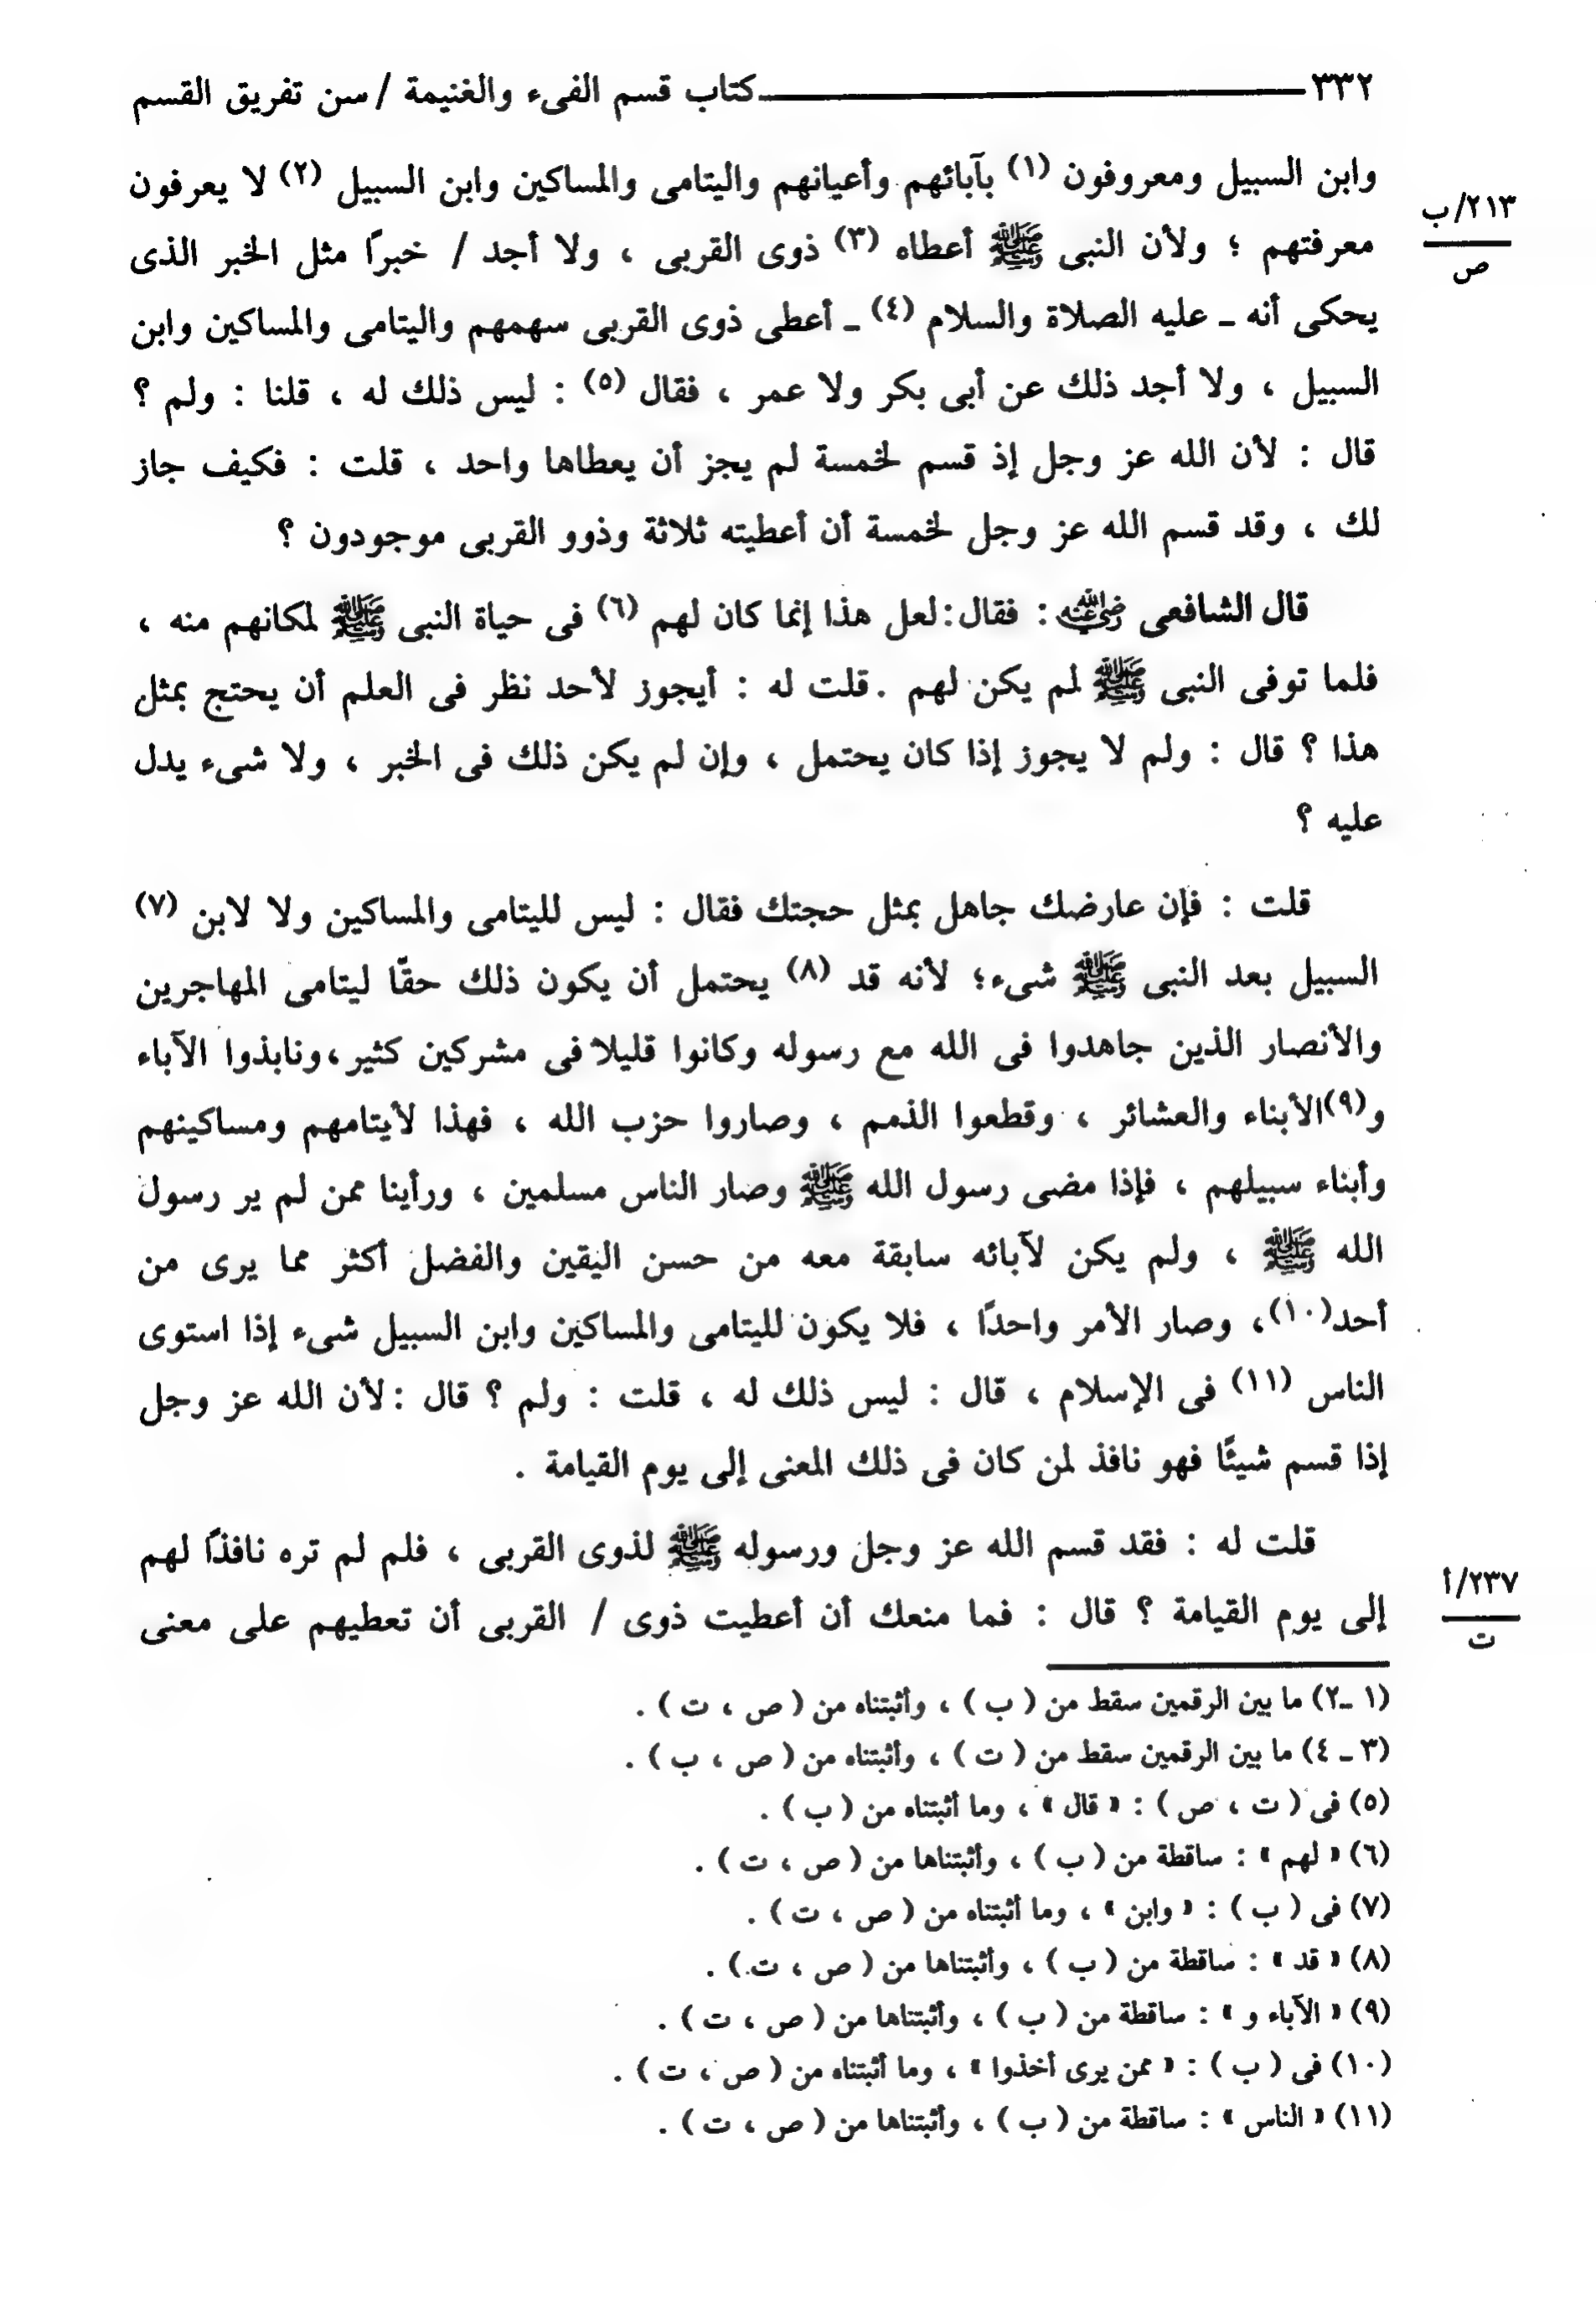 ٣٣٢ كتاب قسم الفىء والغنيمة / سن تفريق القسم
وابن السبيل ومعروفون (١) بآبائهم وأعيانهم واليتامى والمساكين وابن السبيل (٢) لا يعرفون
٢١٣/ب
ص
معرفتهم ؛ ولأن النبى ﷺ أعطاه (٣) ذوى القربى ، ولا أجد / خبرًا مثل الخبر الذى
يحكى أنه ـ عليه الصلاة والسلام (٤) ـ أعطى ذوى القربى سهمهم واليتامى والمساكين وابن
السبيل ، ولا أجد ذلك عن أبى بكر ولا عمر ، فقال (٥) : ليس ذلك له ، قلنا : ولم ؟
قال : لأن الله عز وجل إذ قسم لخمسة لم يجز أن يعطاها واحد ، قلت : فكيف جاز
لك ، وقد قسم الله عز وجل لخمسة أن أعطيته ثلاثة وذوو القربى موجودون ؟
قال الشافعى رضي الله عنه : فقال : لعل هذا إنما كان لهم (٦) فى حياة النبى ﷺ لمكانهم منه ،
فلما توفى النبى ﷺ لم يكن لهم . قلت له : أيجوز لأحد نظر فى العلم أن يحتج بمثل
هذا ؟ قال : ولم لا يجوز إذا كان يحتمل ، وإن لم يكن ذلك فى الخبر ، ولا شىء يدل
عليه ؟
قلت : فإن عارضك جاهل بمثل حجتك فقال : ليس لليتامى والمساكين ولا لابن (٧)
السبيل بعد النبى ﷺ شىء؛ لأنه قد (٨) يحتمل أن يكون ذلك حقّا ليتامى المهاجرين
والأنصار الذين جاهدوا فى الله مع رسوله وكانوا قليلا فى مشركين كثير، ونابذوا الآباء
و(٩)الأبناء والعشائر ، وقطعوا الذمم ، وصاروا حزب الله ، فهذا لأيتامهم ومساكينهم
وأبناء سبيلهم ، فإذا مضى رسول الله ﷺ وصار الناس مسلمين ، ورأينا ممن لم ير رسول
الله ﷺ ، ولم يكن لآبائه سابقة معه من حسن اليقين والفضل أكثر مما يرى من
أحد(١٠)، وصار الأمر واحدًا ، فلا يكون لليتامى والمساكين وابن السبيل شىء إذا استوى
الناس (١١) فى الإسلام ، قال : ليس ذلك له ، قلت : ولم ؟ قال : لأن الله عز وجل
إذا قسم شيئًا فهو نافذ لمن كان فى ذلك المعنى إلى يوم القيامة .
قلت له : فقد قسم الله عز وجل ورسوله ﷺ لذوى القربى ، فلم لم تره نافذًا لهم
٢٣٧/أ
ت
إلى يوم القيامة ؟ قال : فما منعك أن أعطيت ذوى / القربى أن تعطيهم على معنى
(١ ـ٢) ما بين الرقمين سقط من ( ب ) ، وأثبتناه من ( ص ، ت ) .
(٣ ـ ٤) ما بين الرقمين سقط من ( ت ) ، وأثبتناه من ( ص ، ب ) .
(٥) فى ( ت ، ص ) : « قال » ، وما أثبتناه من ( ب ) .
(٦) « لهم » : ساقطة من ( ب ) ، وأثبتناها من ( ص ، ت ) .
(٧) فى ( ب ) : « وابن » ، وما أثبتناه من ( ص ، ت ) .
(٨) « قد » : ساقطة من ( ب ) ، وأثبتناها من ( ص ، ت ) .
(٩) « الآباء و » : ساقطة من ( ب ) ، وأثبتناها من ( ص ، ت ) .
(١٠) فى ( ب ) : « ممن يرى أخذوا » ، وما أثبتناه من ( ص ، ت ) .
(١١) « الناس » : ساقطة من ( ب ) ، وأثبتناها من ( ص ، ت ) .